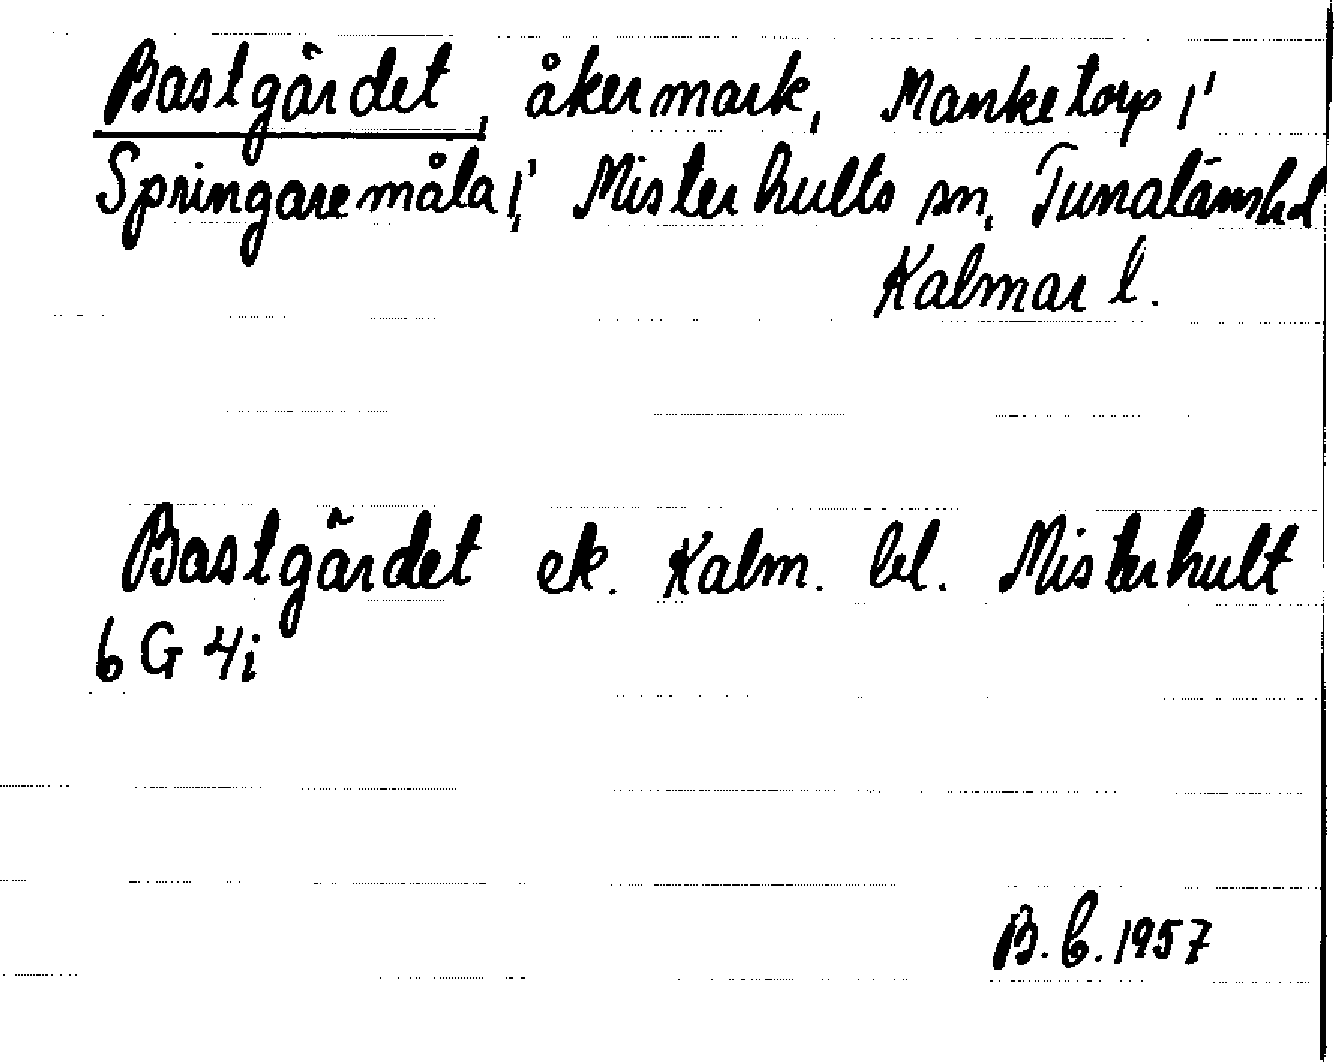 Bastgärdet, åkermark, Manketorp 1¹
Springaremåla 1,¹ Misterhults sn, Tunaläns hd
Kalmar l.
Bastgärdet ek. Kalm. bl. Misterhult
6 G 4i
B. b. 1957